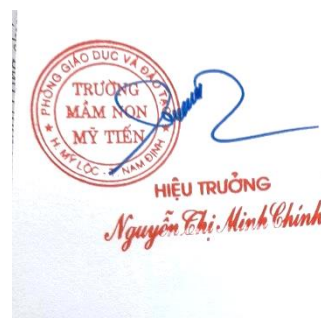 PHÒNG GIÁO DỤC VÀ ĐÀO TẠO
TRƯỜNG
MẦM NON
MỸ TIẾN
H. MỸ LỘC - T. NAM ĐỊNH
HIỆU TRƯỞNG
Nguyễn Thị Minh Chính